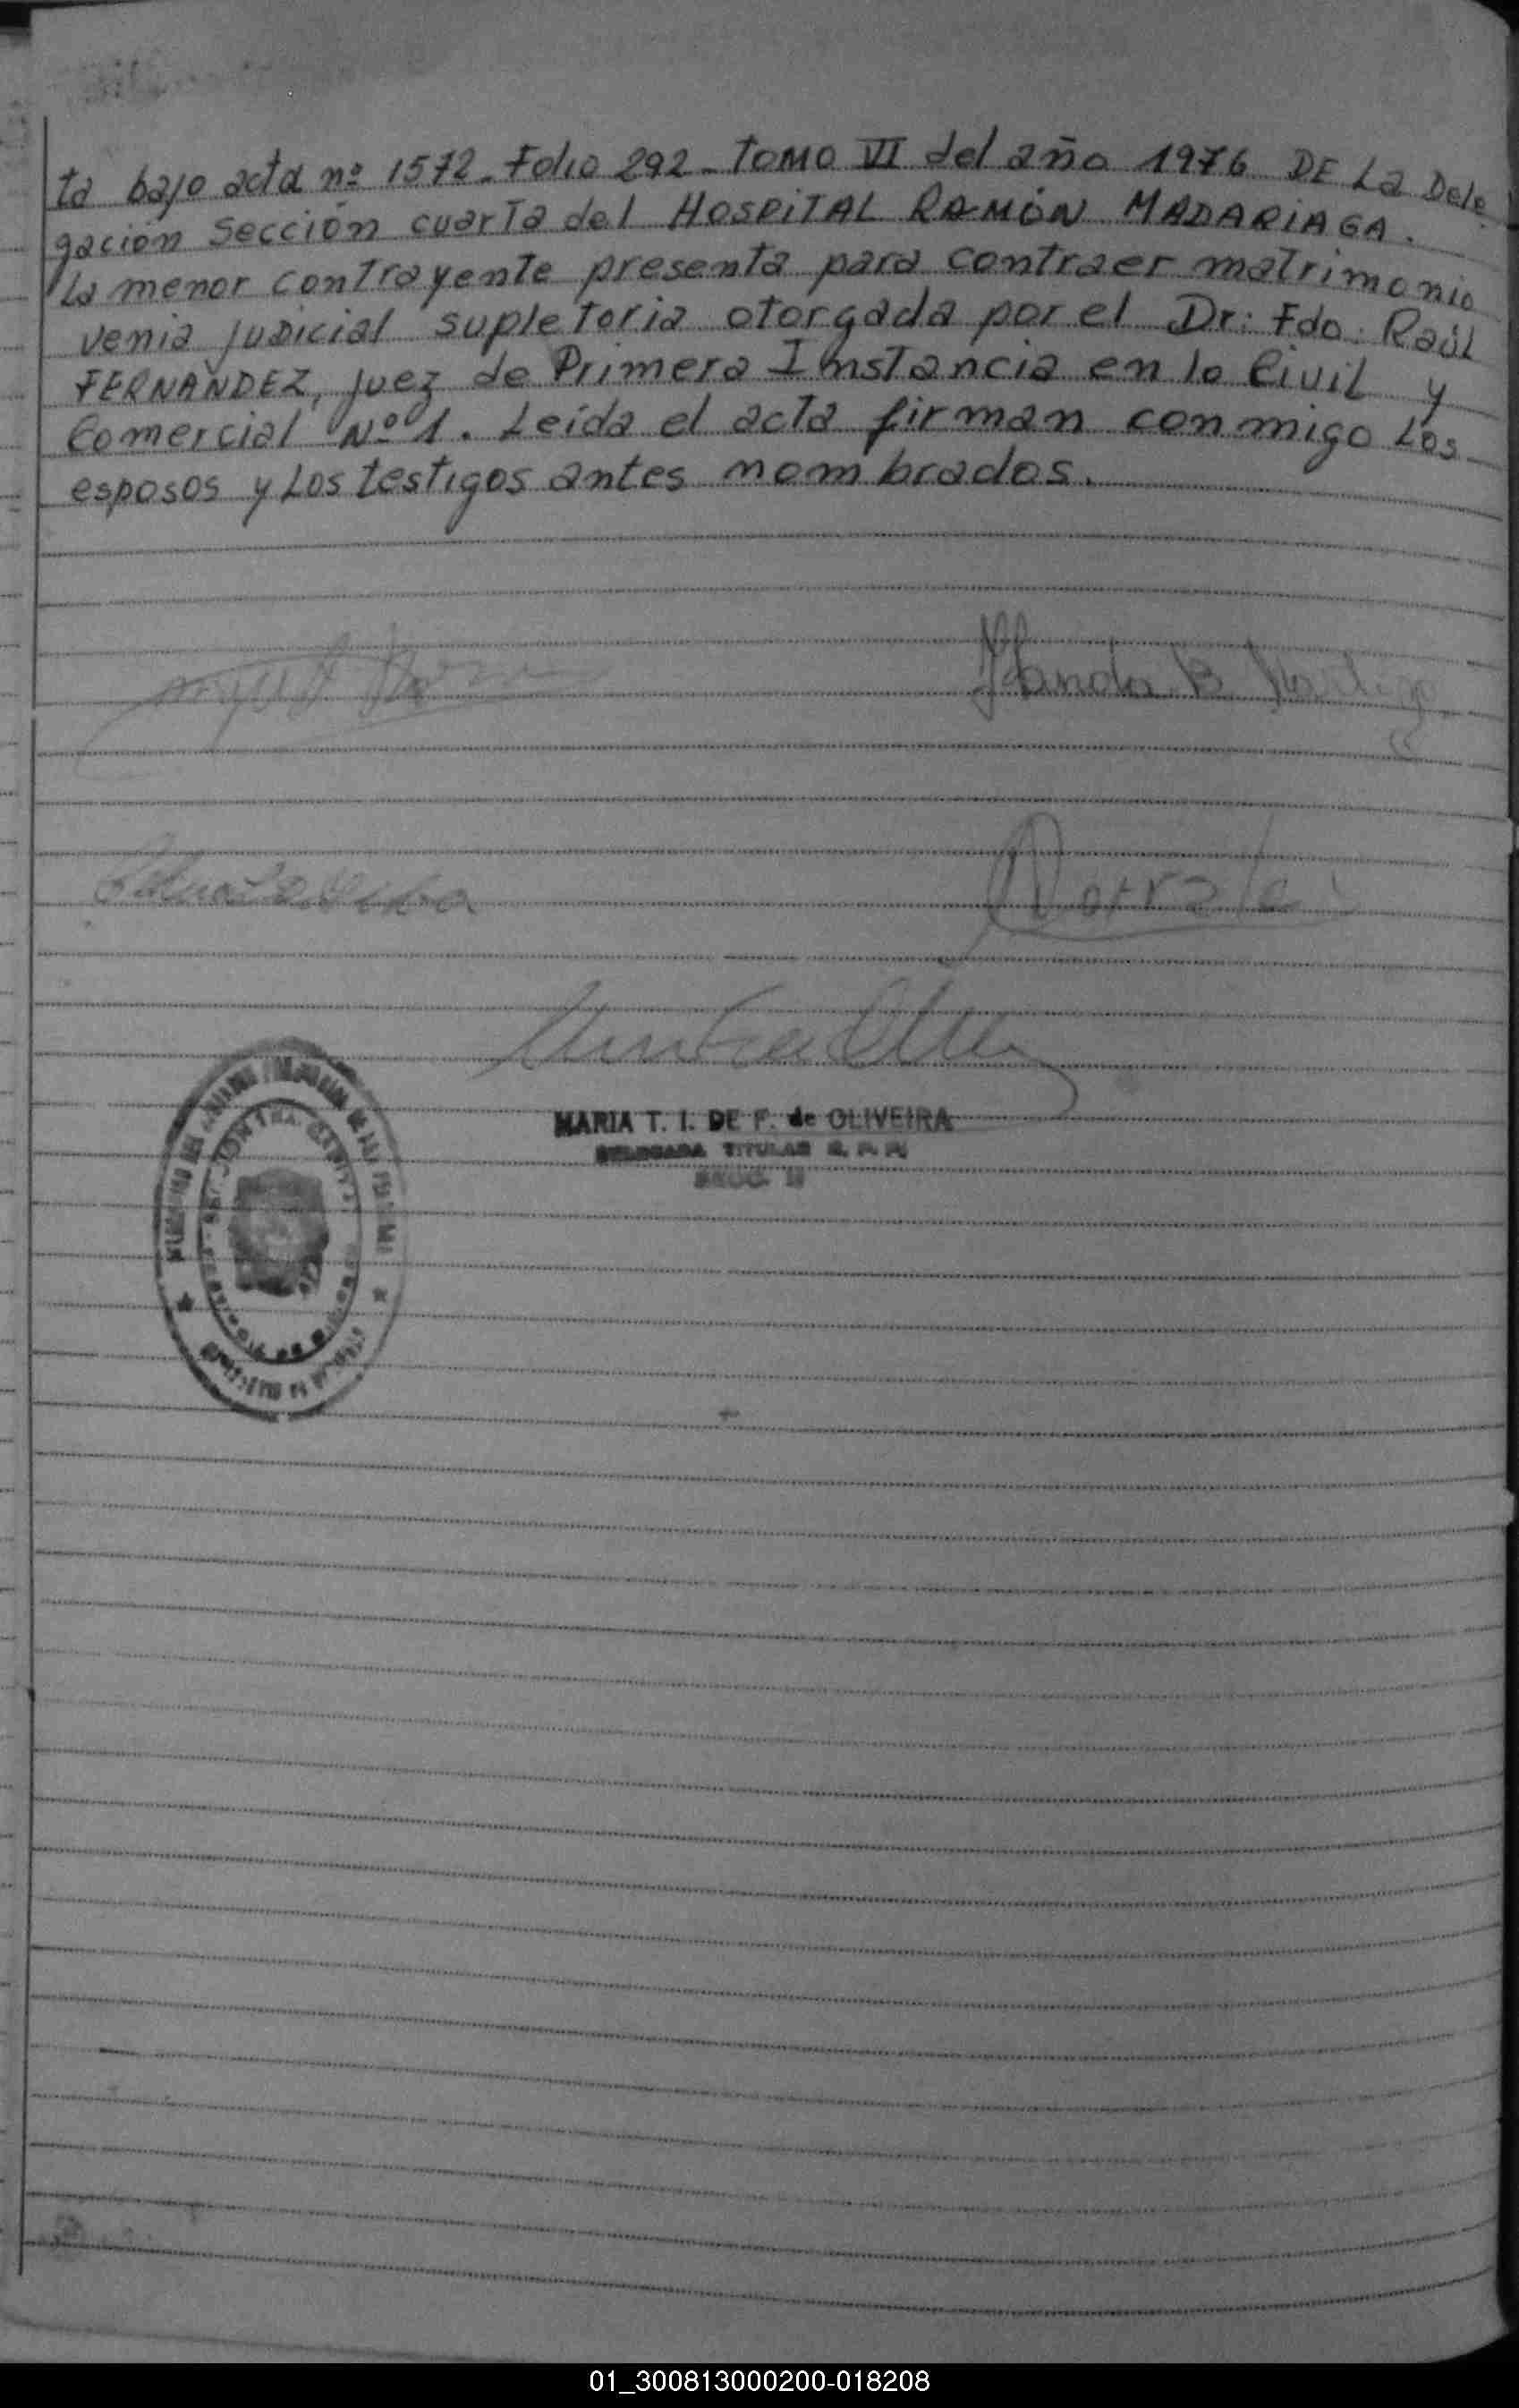 ta bajo acta nº 1572. Folio 292. TOMO VI del año 1976 DE La Dele
gación Sección cuarta del HOSPITAL RAMÓN MADARIAGA.
La menor contrayente presenta para contraer matrimonio
venia judicial supletoria otorgada por el Dr: Fdo: Raúl
FERNANDEZ, juez de Primera Instancia en lo Civil y
Comercial Nº 1. Leída el acta firman conmigo Los
esposos y Los testigos antes nombrados.
B.
MARIA T. I. DE F. de OLIVEIRA
DELEGADA TITULAR R. P. P.
01_300813000200-018208